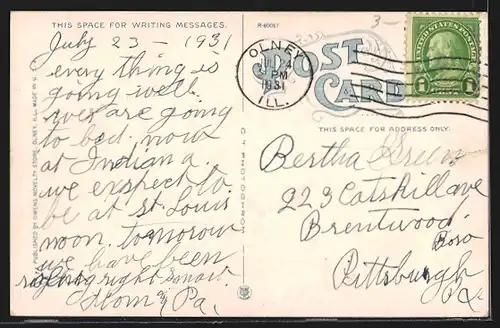 THIS SPACE FOR WRITING MESSAGES.
July 23 - 1931
every thing is
going well.
we are going
to bed. now
at Indiana.
we expect to
be at St. Louis
noon. tomorow
we have been
right smart.
Mom & Pa.
PUBLISHED BY OWENS NOVELTY STORE, OLNEY, ILL. MADE IN U.
R-60067
3-
POST CARD
OLNEY
JUL 24
PM
1931
ILL.
UNITED STATES POSTAGE
1 1
THIS SPACE FOR ADDRESS ONLY.
Bertha Green
223 Catskill ave
Brentwood
Boro
Pittsburgh
Pa